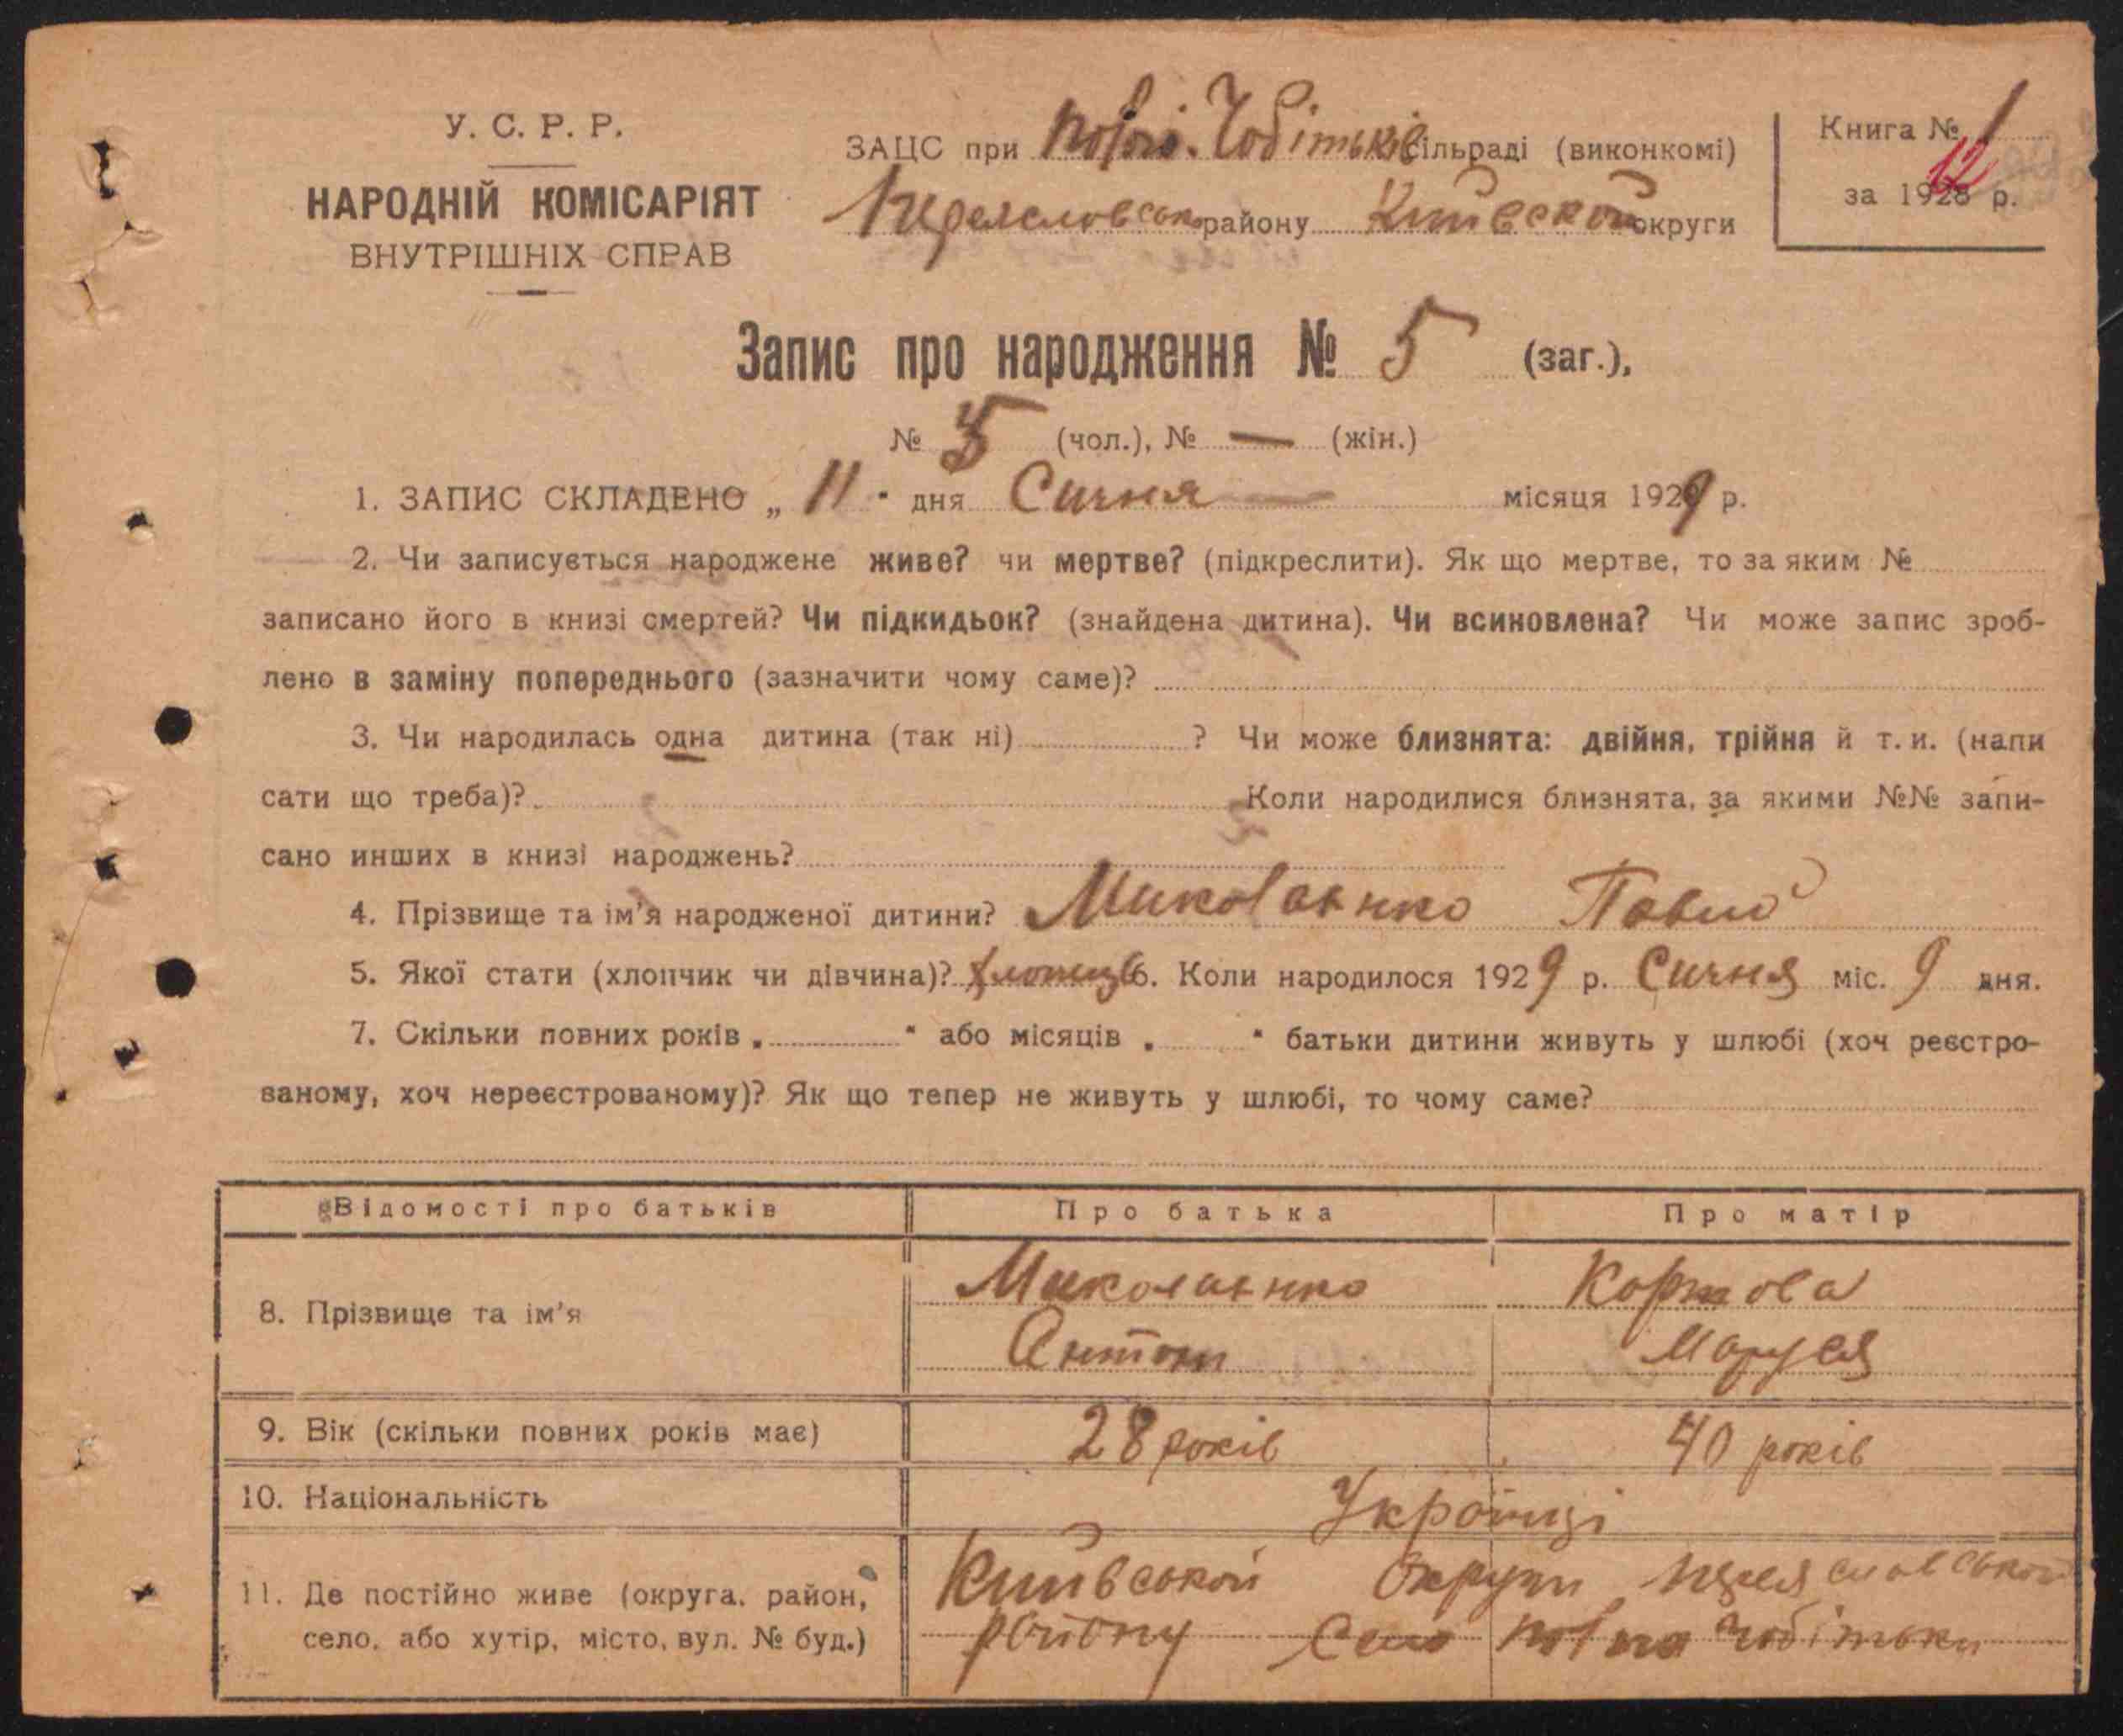 У. С. Р. Р.
НАРОДНІЙ КОМІСАРІЯТ
ВНУТРІШНІХ СПРАВ
ЗАЦС при сільраді (виконкомі)
району округи
Книга № 1
за 1928 р.
12
Запис про народження № 5 (заг.),
№ 5 (чол.), № — (жін.)
1. ЗАПИС СКЛАДЕНО „ 11 " дня Сичня — місяця 1929 р.
2. Чи записується народжене живе? чи мертве? (підкреслити). Як що мертве, то за яким №
записано його в книзі смертей? Чи підкидьок? (знайдена дитина). Чи всиновлена? Чи може запис зроб-
лено в заміну попереднього (зазначити чому саме)?
3. Чи народилась одна дитина (так ні) ? Чи може близнята: двійня, трійня й т. и. (напи
сати що треба)? Коли народилися близнята, за якими №№ запи-
сано инших в книзі народжень?
4. Прізвище та ім'я народженої дитини? Миколаєнко Павло
5. Якої стати (хлопчик чи дівчина)? хлопець 6. Коли народилося 1929 р. Сичня міс. 9 дня.
7. Скільки повних років „ " або місяців „ " батьки дитини живуть у шлюбі (хоч реєстро-
ваному, хоч нереєстрованому)? Як що тепер не живуть у шлюбі, то чому саме?
Відомості про батьків Про батька Про матір
8. Прізвище та ім'я Миколаєнко
Антон Маруся
9. Вік (скільки повних років має) 28 років 40 років
10. Національність Українці
11. Де постійно живе (округа, район, Київської Округи
село, або хутір, місто, вул. № буд.) району Село Чобітьки